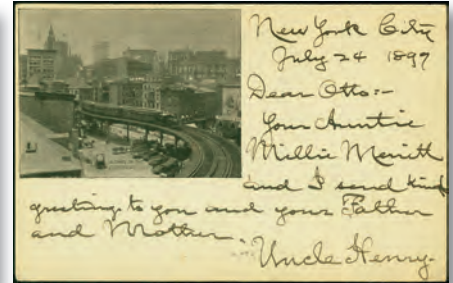 New York City
July 24 1897
Dear Otto:-
Your Auntie
Millie Merritt
and I send kind
greetings to you and your Father
and Mother.
Uncle Henry.